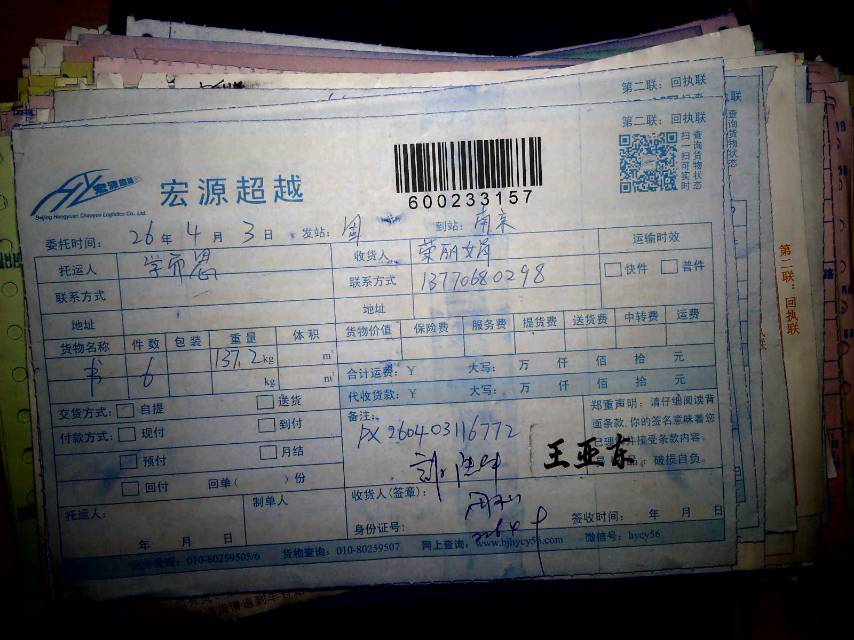 第二联：回执联
第二联：回执联
宏源超越
Beijing Hengyuan Chaoyue Logistics Co., Ltd
600233157
查询货物状态
扫一扫可实时
委托时间： 26 年 4 月 3 日 发站： 到站：南京
托运人 收货人 荣丽娟 运输时效
联系方式 联系方式 13770680298 快件 普件
地址 地址
货物名称 件数 包装 重量 体积 货物价值 保险费 服务费 提货费 送货费 中转费 运费
书 6 137.2 kg m³
kg m³ 合计运费：￥ 大写： 万 仟 佰 拾 元
代收货款：￥ 大写： 万 仟 佰 拾 元
交货方式： 自提 送货 备注： 郑重声明：请仔细阅读背
付款方式： 现付 到付 DX260403116772 面条款，你的签名意味着您
预付 月结 王亚东 接受条款内容。
回付 回单（ ）份 破损自负。
托运人： 制单人 收货人（签章）：
年 月 日 身份证号： 签收时间： 年 月 日
业务受理：010-80259505/6 货物查询：010-80259507 网上查询：www.bjhycy56.com 微信号：hycy56
第二联：回执联